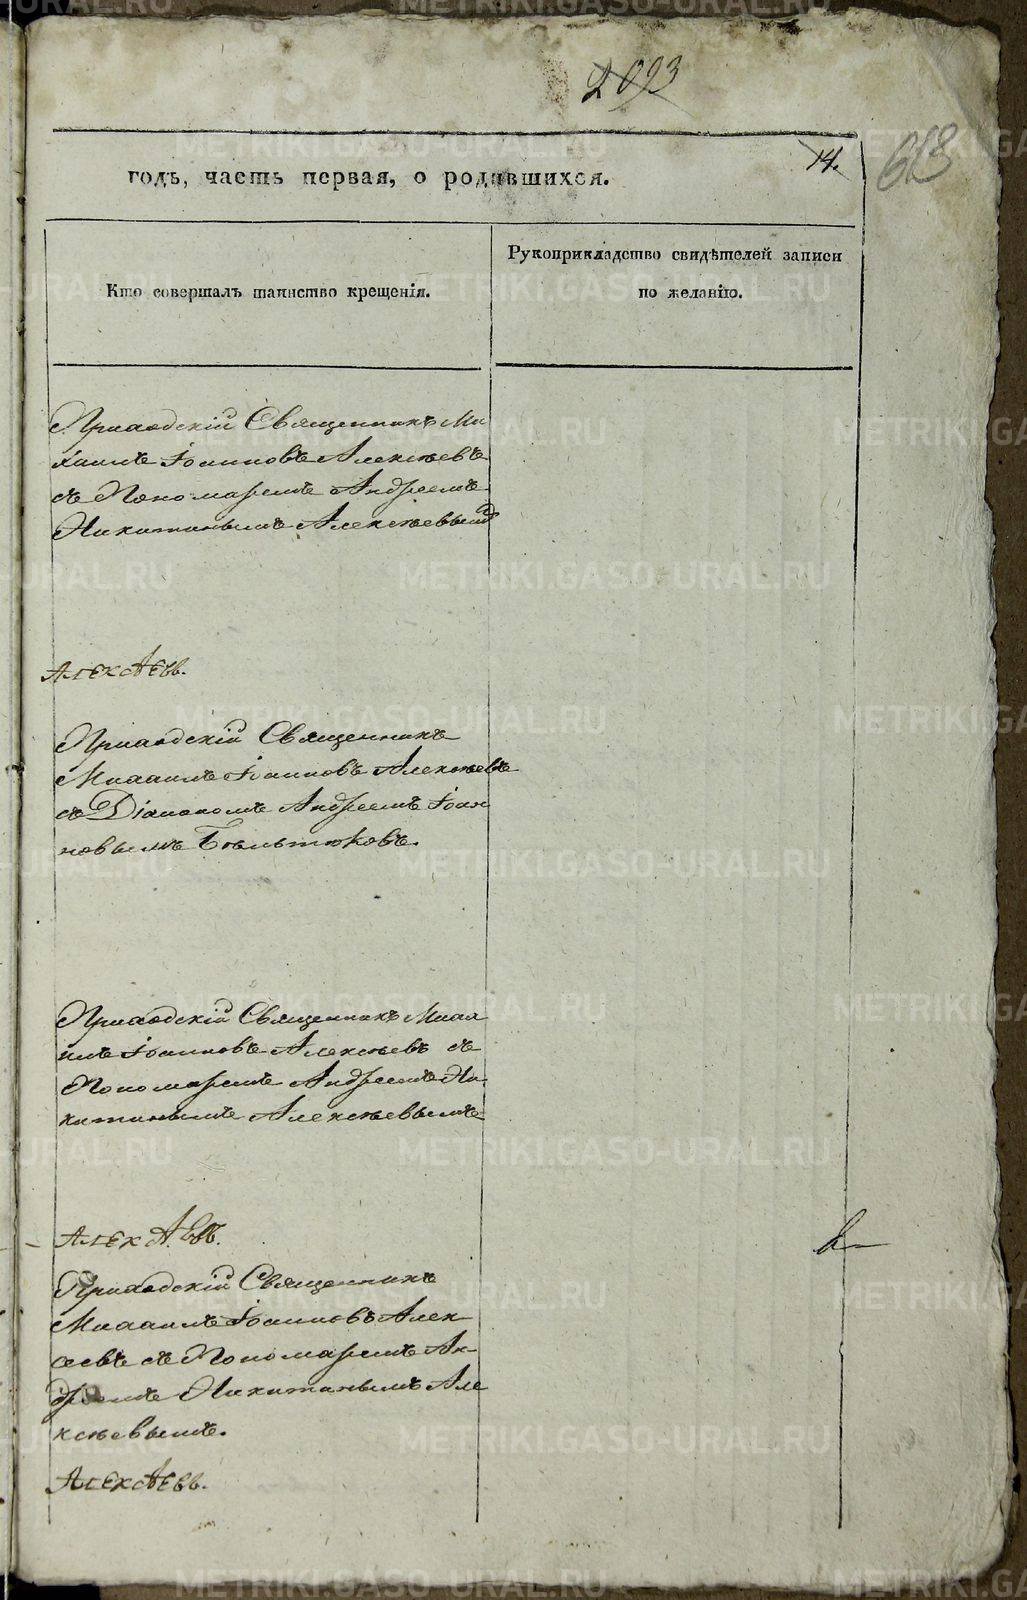 2093
14.
613
годъ, часть первая, о родившихся.
Кто совершалъ таинство крещенія.
Рукоприкладство свидѣтелей записи
по желанію.
Приходскій Священникъ Ми
хаилъ Іоанновъ Алексѣевъ
съ Пономаремъ Андреемъ
Никитинымъ Алексѣевымъ
Алексѣевъ.
Приходскій Священникъ
Михаилъ Іоанновъ Алексѣевъ
съ Діакономъ Андреемъ Іоан
новымъ Бѣльтюковъ.
Приходскій Священникъ Миха
илъ Іоанновъ Алексѣевъ съ
Пономаремъ Андреемъ Ни
китинымъ Алексѣевымъ
Алексѣевъ.
Приходскій Священникъ
Михаилъ Іоанновъ Алек
сѣевъ съ Пономаремъ Ан-
дреемъ Никитинымъ Але
ксѣевымъ.
Алексѣевъ.
METRIKI.GASO-URAL.RU